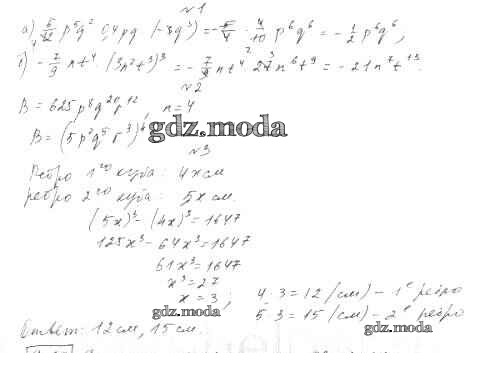 №1
а) 5/12 p⁵q² · 0,4pq · (-3q³) = -5/4 · 4/10 p⁶q⁶ = -1/2 p⁶q⁶,
б) -7/9 nt⁴ · (3n²t³)³ = -7/9 nt⁴ · 27n⁶t⁹ = -21n⁷t¹³.
№2
B = 625p⁸q²⁰r¹², n=4
B = (5p²q⁵r³)⁴
gdz.moda
№3
Ребро 1го куба: 4x см
ребро 2го куба: 5x см.
(5x)³ - (4x)³ = 1647
125x³ - 64x³ = 1647
61x³ = 1647
x³ = 27
x = 3; 4·3 = 12 (см) - 1е ребро
gdz.moda 5·3 = 15 (см) - 2е ребро
Ответ: 12 см, 15 см.
gdz.moda